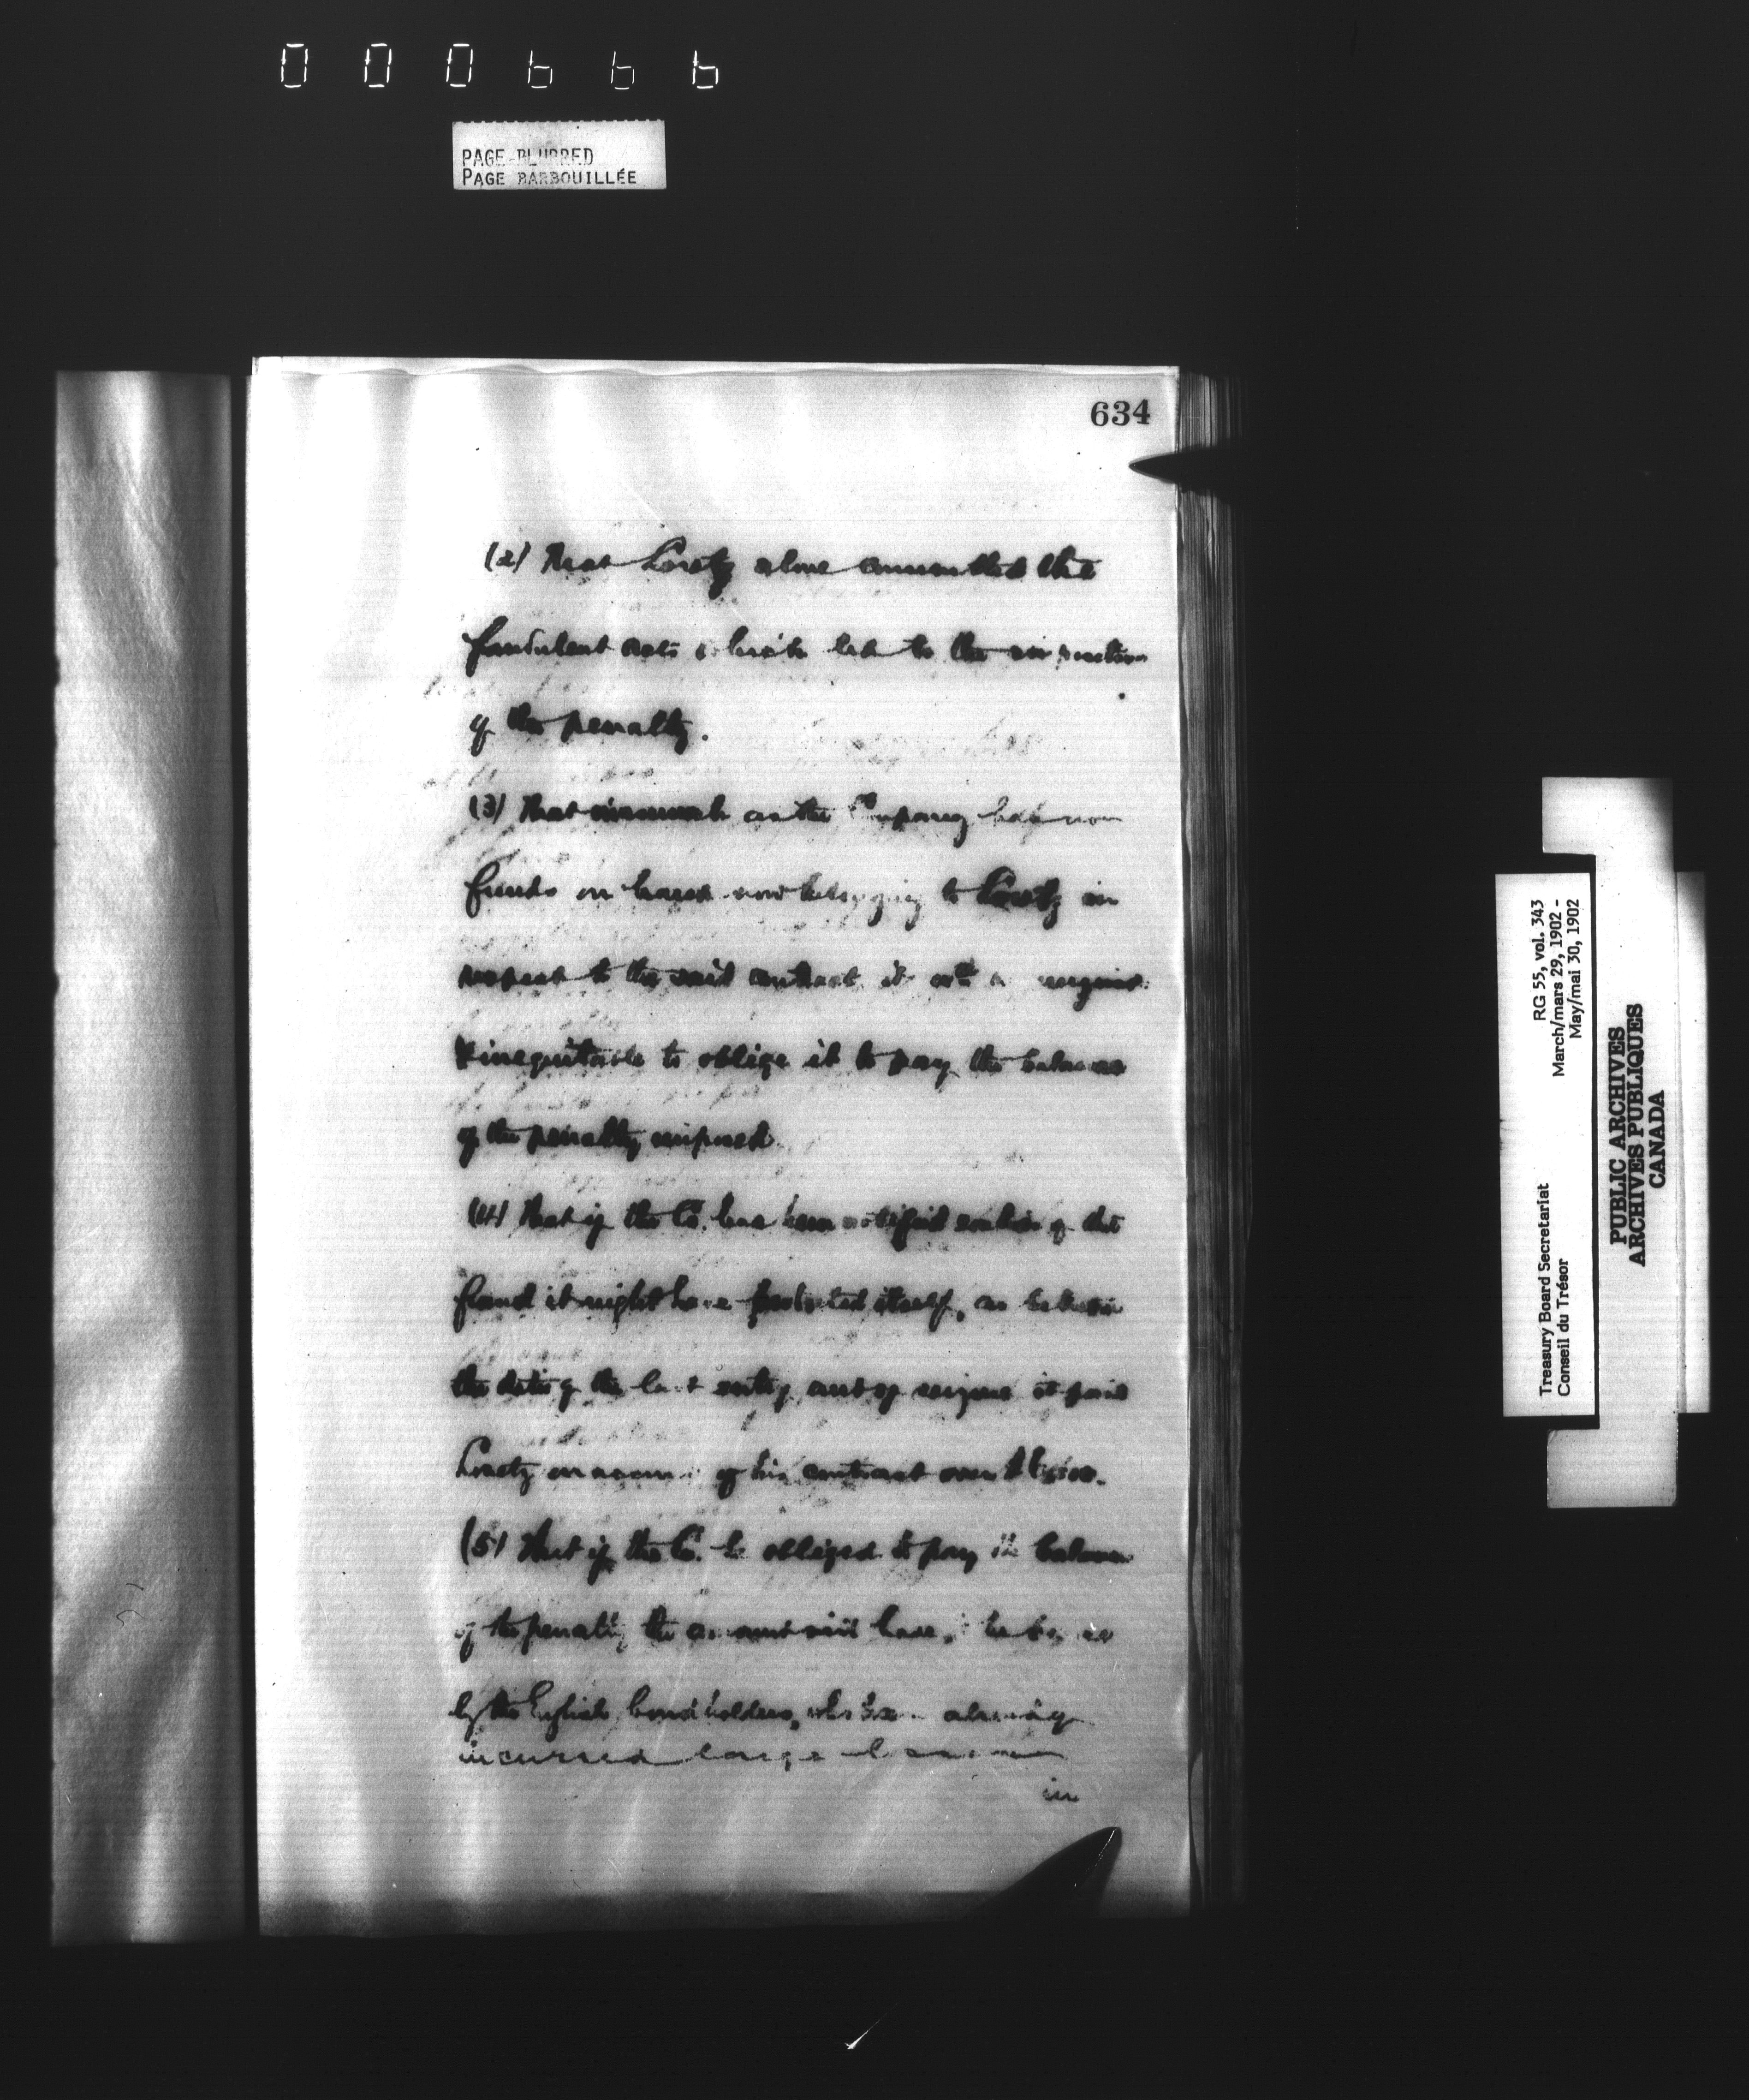 000666
PAGE BLURRED
PAGE BARBOUILLÉE
634
(2) That Loretz alone committed the
fraudulent acts which led to the imposition
of the penalty.
(3) That inasmuch as the Company has
funds on hand now belonging to Loretz in
respect to the said contract it
& inequitable to oblige it to pay the balance
of the penalty imposed.
(4) That if the Co. had been notified earlier of the
fraud it might have protected itself, as between
the date of the last entry and of seizure it paid
Loretz on account of his contract over
(5) That if the Co. be obliged to pay the balance
of the penalty the amount will have to be
by the English bondholders, who have already
incurred large
in
RG 55, vol. 343
March/mars 29, 1902 -
May/mai 30, 1902
Treasury Board Secretariat
Conseil du Trésor
PUBLIC ARCHIVES
ARCHIVES PUBLIQUES
CANADA